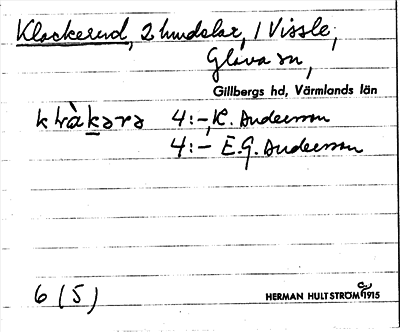 Klockerud, 2 hmdelar, i Vissle,
Glava sn,
Gillbergs hd, Värmlands län
4:-, K. Andersson
4:- E.G. Andersson
6 (5)
HERMAN HULTSTRÖM 1915